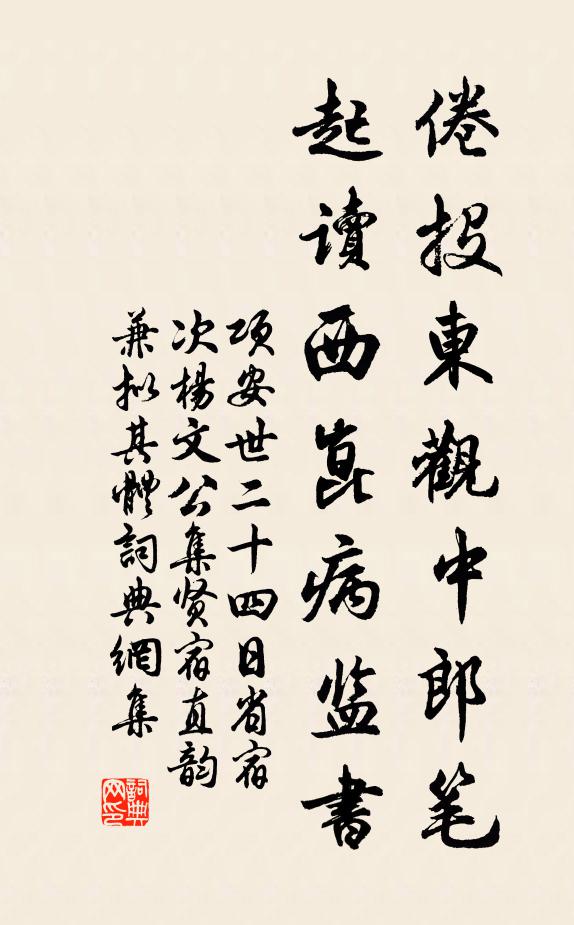 倦投東觀中郎笔
起讀西崑病监書
项安世二十四日省宿
次楊文公集贤宿直韵
兼拟其體詞典網集
詞典網印